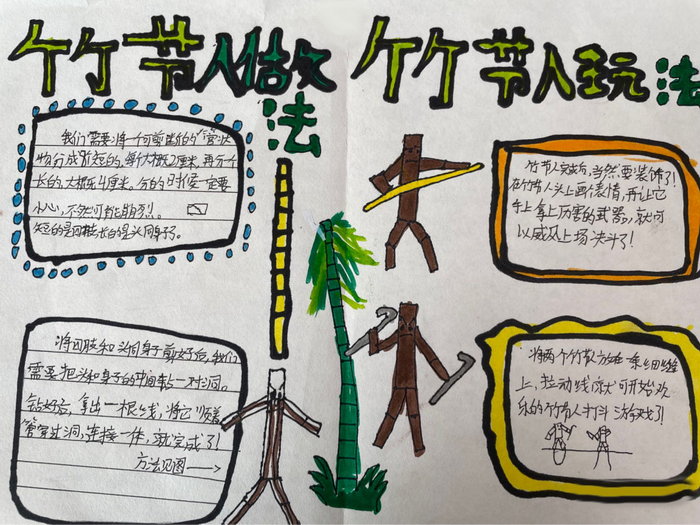 竹节人做法
我们需要将一个可剪
物分成8个短的,每个大概2厘米,再分一个
长的,大概4厘米,分的时候一定要
小心,不然可能
短的是四肢,长的是头同身子。
将四肢和头同身子剪好后,我们
需要把头和身子的中间钻一对洞。
钻好后,拿出一根线,将它顺着
管穿过洞,连接一体,就完成了!
方法见图
竹节人玩法
竹节人完成后,当然要装饰了!
在竹节人头上画个表情,再让它
手上拿上厉害的武器,就可
以威风上场决斗了!
将两个竹节人放在一条细缝
上,拉动线,就可开始欢
乐的竹节人打斗游戏了!